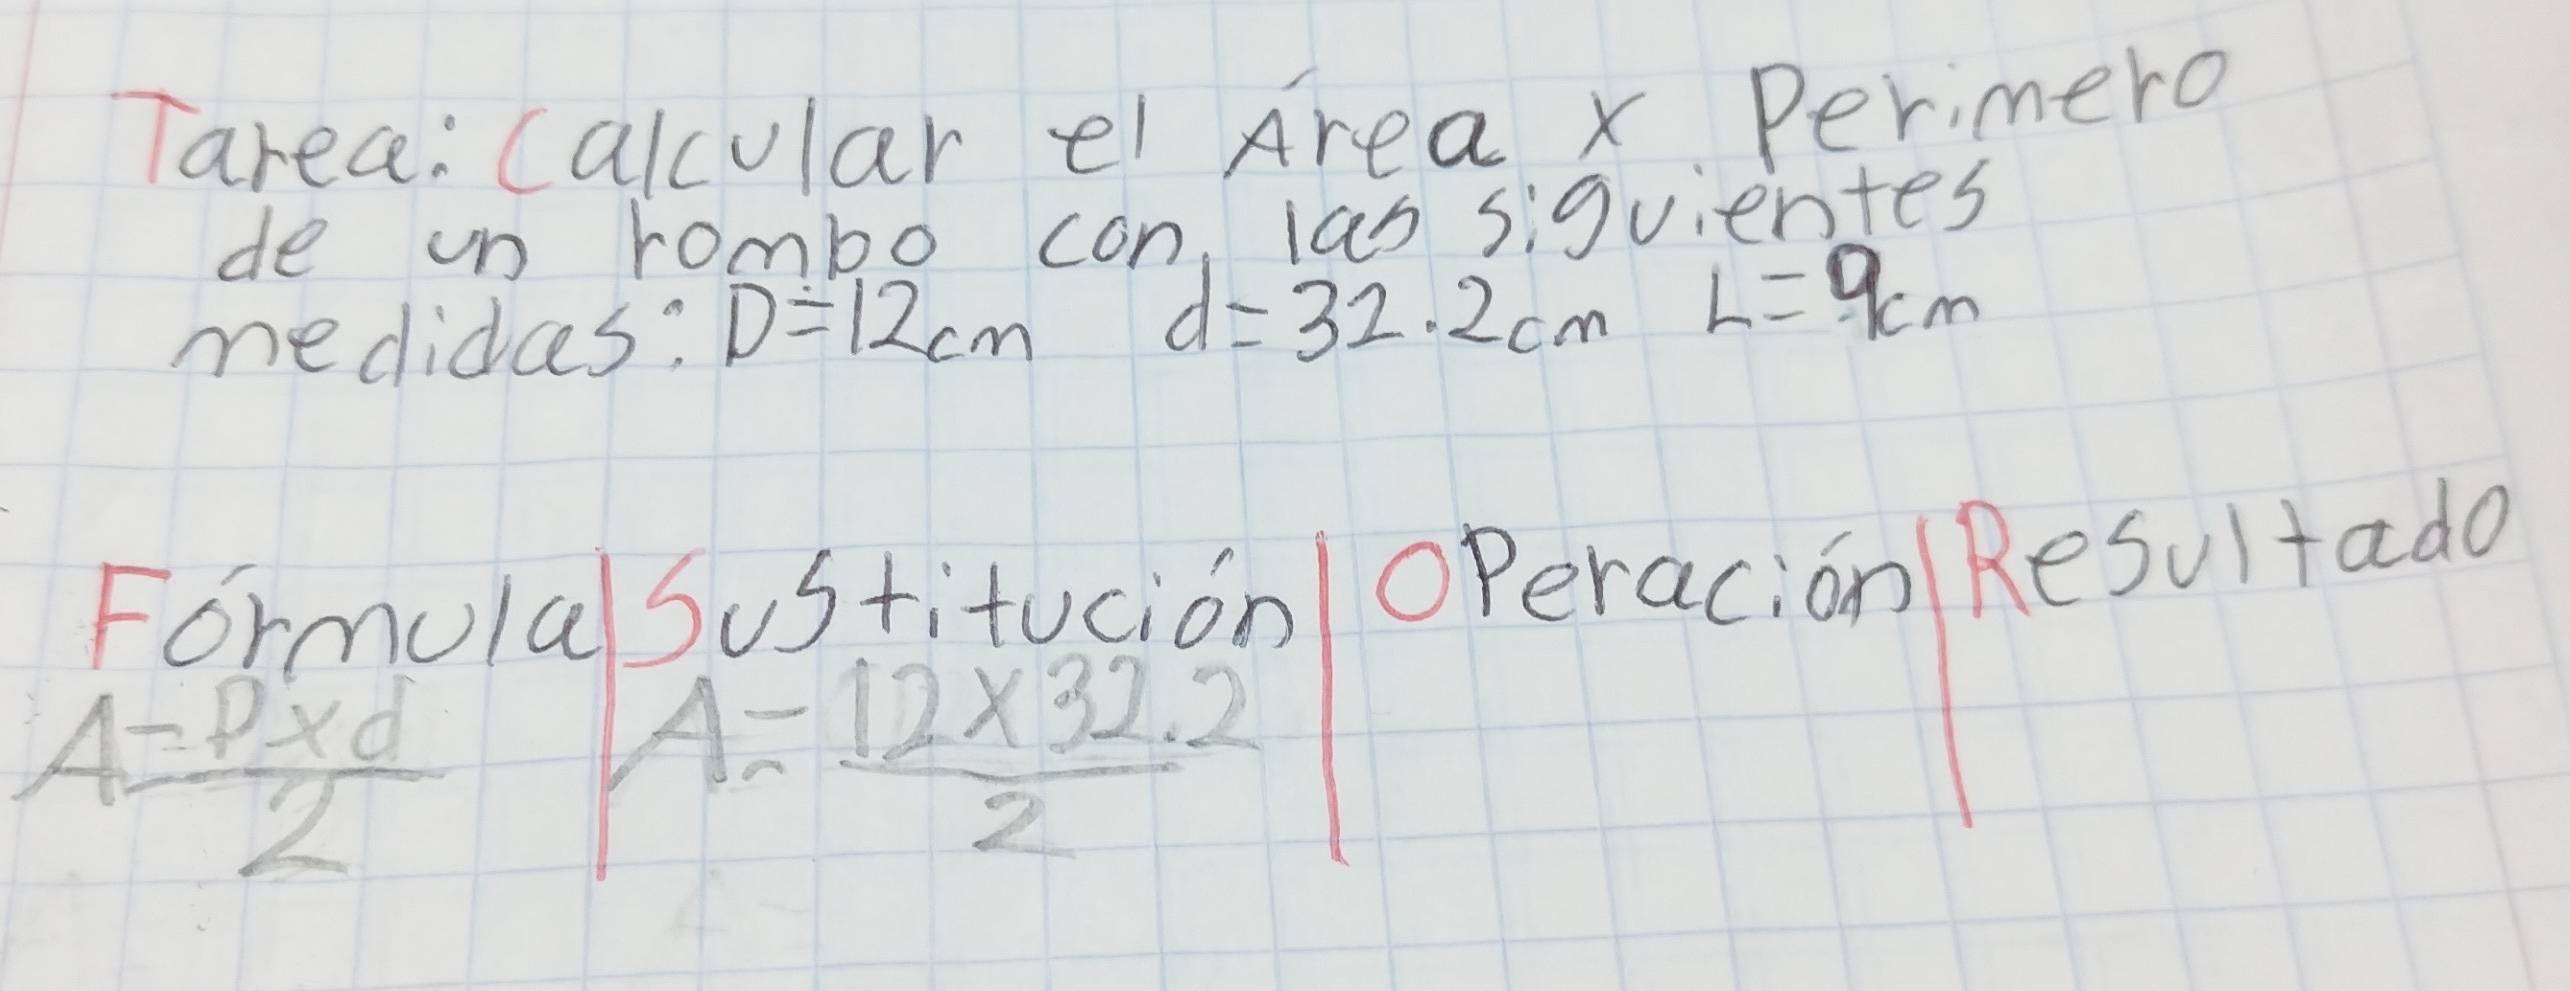 Tarea: Calcular el Área x Perimero
de un rombo con las siguientes
medidas: D=12cm d=32.2cm L=9cm
Fórmula | Sustitución | Operación | Resultado
A=Dxd/2 A=12x32.2/2